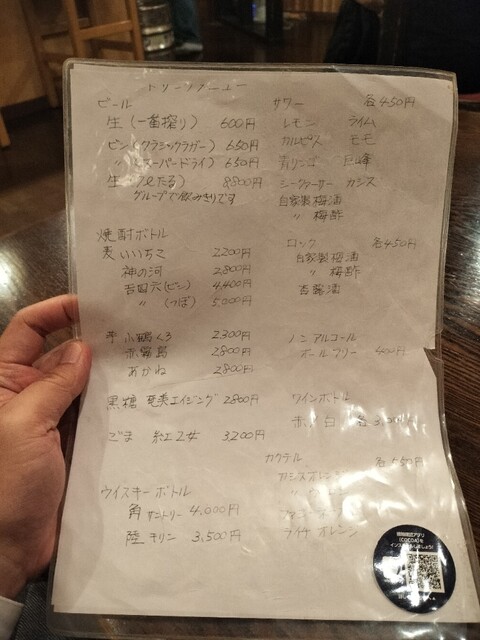 ドリンクメニュー
ビール
生(一番搾り) 600円
ビン(クラシックラガー) 650円
〃(スーパードライ) 650円
生 たる) 8800円
グループで飲みきりです
焼酎ボトル
麦 いいちこ 2200円
神の河 2800円
吉四六(ビン) 4,400円
〃 (つぼ) 5,000円
芋 小鶴くろ 2300円
赤霧島 2800円
あかね 2800円
黒糖 奄美エイジング 2800円
ごま 紅乙女 3,200円
ウイスキーボトル
角 サントリー 4,000円
陸 キリン 3,500円
サワー 各450円
レモン ライム
カルピス モモ
青りんご 巨峰
シークァーサー カシス
自家製梅酒
〃 梅酢
ロック 各450円
自家製梅酒
〃 梅酢
杏露酒
ノンアルコール
オールフリー 400円
ワインボトル
赤/白 各
カクテル 各550円
カシスオレンジ
ライチオレンジ
接触確認アプリ
(COCOA)を
インストールしましょう!